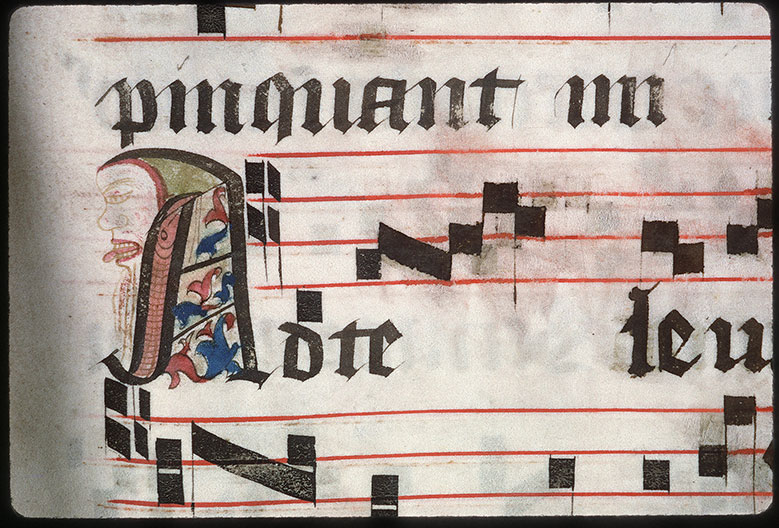 pinquant in
Adte leu